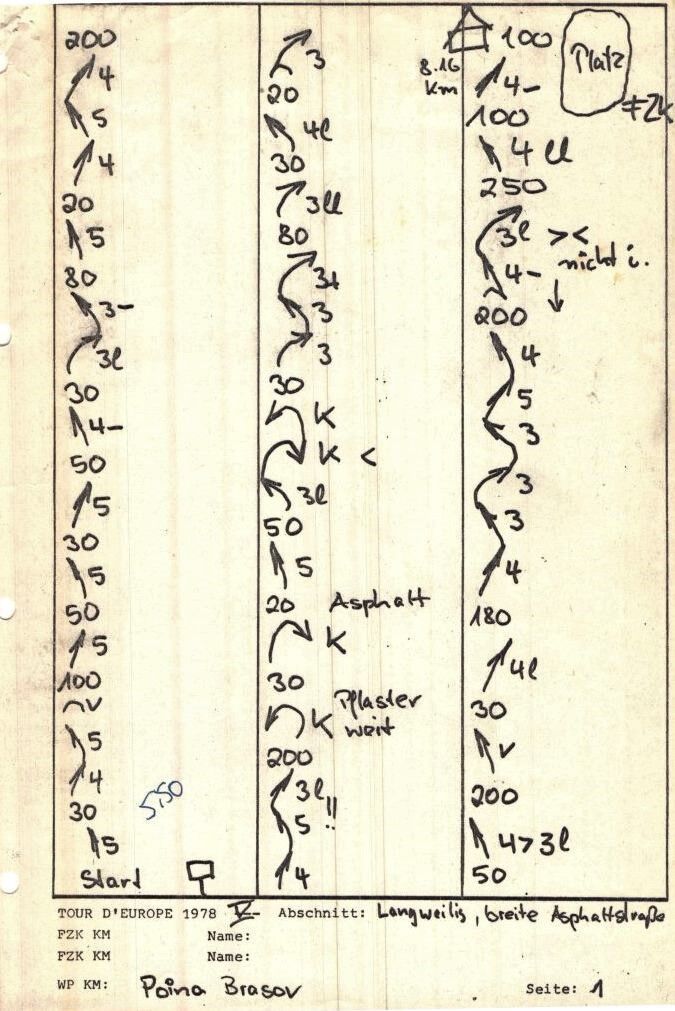 200
4
5
4
20
5
80
3-
3l
30
4-
50
5
30
5
50
5
100
v
5
4
30
5
Start
3
20
4l
30
3ll
80
3+
3
3
30
K
K <
3l
50
5
20 Asphalt
K
30
Pflaster
K weit
200
3l
5 !!
4
100 Platz
8.16
km 4-
100 ≠ZK
4 ll
250
3l ><
nicht i.
4-
200
4
5
3
3
3
4
180
4l
30
v
200
4>3l
50
TOUR D'EUROPE 1978 V- Abschnitt: Langweilig, breite Asphaltstraße
FZK KM Name:
FZK KM Name:
WP KM: Poina Brasov Seite: 1